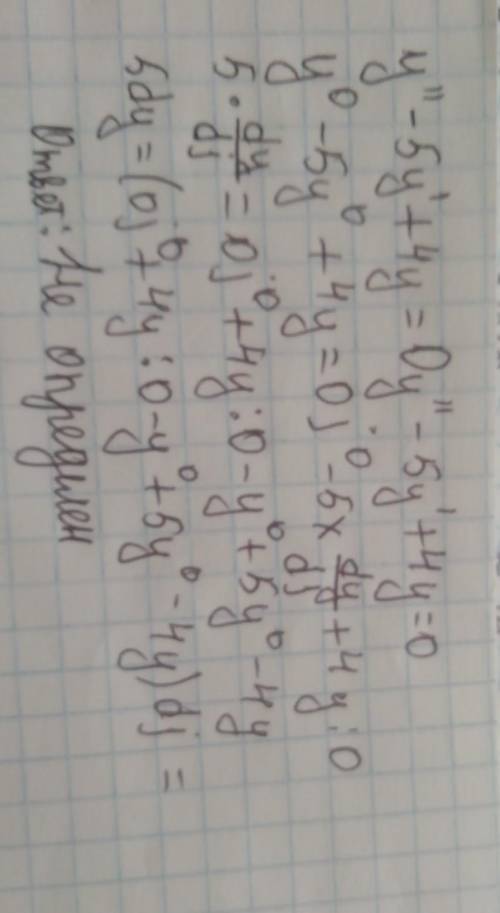 y'' - 5y' + 4y = 0y'' - 5y' + 4y = 0
y⁰ - 5y⁰ + 4y = 0j⁰ - 5x dy/dj + 4y : 0
5 · dy/dj = 0j⁰ + 4y : 0 - y⁰ + 5y⁰ - 4y
5dy = (0j⁰ + 4y : 0 - y⁰ + 5y⁰ - 4y) dj =
Ответ: Не определен